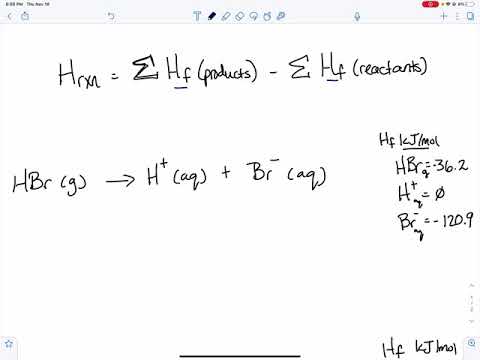 6:50 PM Thu Nov 16
H rxn = Σ Hf (products) - Σ Hf (reactants)
HBr (g) → H⁺ (aq) + Br⁻ (aq)
Hf kJ/mol
HBr g = -36.2
H⁺ aq = ∅
Br⁻ aq = -120.9
Hf kJ/mol